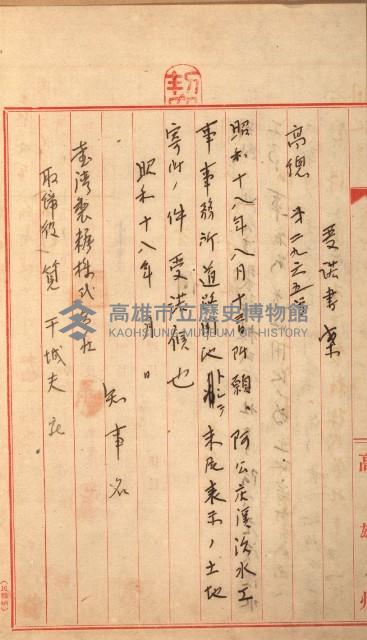 受諾書案
高總 第二九六五號
昭和十八年八月十二日附願阿公店溪治水工
事事務所道路用地トシテ末尾表示ノ土地
寄附ノ件受諾候也
昭和十八年 月 日
知事名
臺灣製糖株式會社
取締役 筧 干城夫 宛
高雄州
高雄市立歷史博物館
KAOHSIUNG MUSEUM OF HISTORY